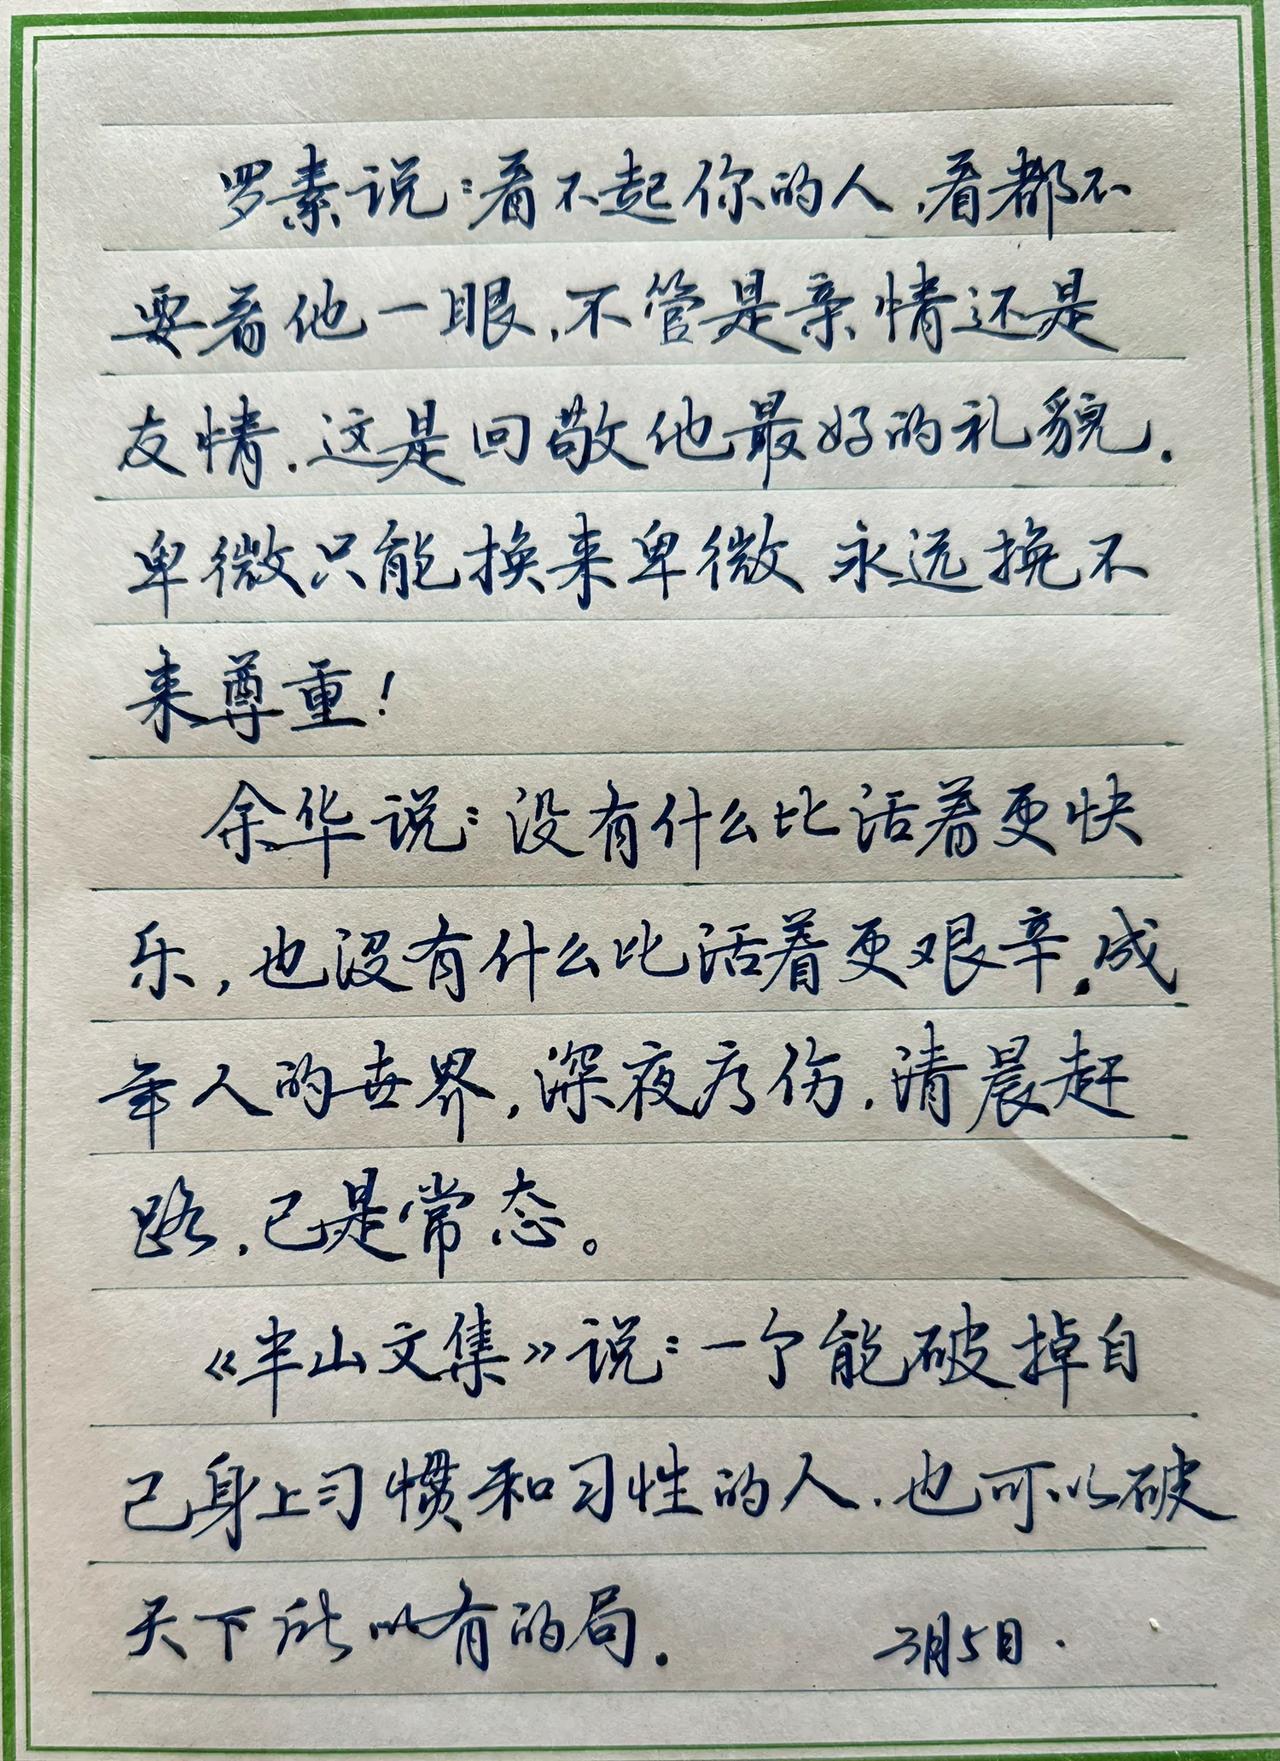 罗素说:看不起你的人,看都不
要看他一眼,不管是亲情还是
友情.这是回敬他最好的礼貌.
卑微只能换来卑微 永远换不
来尊重!
余华说:没有什么比活着更快
乐,也没有什么比活着更艰辛.成
年人的世界,深夜疗伤.清晨赶
路.已是常态。
《半山文集》说:一个能破掉自
己身上习惯和习性的人.也可以破
天下所以有的局. 3月5日.